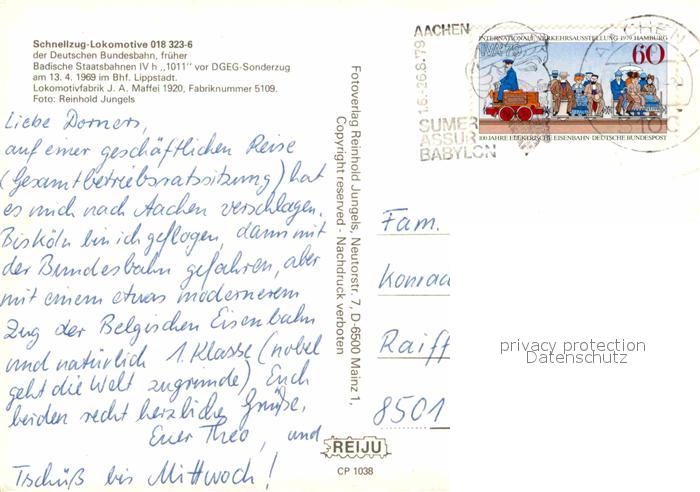 Schnellzug-Lokomotive 018 323-6
der Deutschen Bundesbahn, früher
Badische Staatsbahnen IV h „1011" vor DGEG-Sonderzug
am 13. 4. 1969 im Bhf. Lippstadt.
Lokomotivfabrik J. A. Maffei 1920, Fabriknummer 5109.
Foto: Reinhold Jungels
Liebe Dorners,
auf einer geschäftlichen Reise
(Gesamtbetriebsratssitzung) hat
es mich nach Aachen verschlagen.
Bis Köln bin ich geflogen, dann mit
der Bundesbahn gefahren, aber
mit einem etwas modernerem
Zug der Belgischen Eisenbahn
und natürlich 1. Klasse (nobel
geht die Welt zugrunde) Euch
beiden recht herzliche Grüße,
Euer Theo, und
Tschüß bis Mittwoch!
Fotoverlag Reinhold Jungels, Neutorstr. 7, D-6500 Mainz 1,
Copyright reserved - Nachdruck verboten
REIJU
CP 1038
AACHEN
16.-26.8.79
SUMER
ASSUR
BABYLON
INTERNATIONALE VERKEHRSAUSSTELLUNG 1979 HAMBURG
60
100 JAHRE ELEKTRISCHE EISENBAHN DEUTSCHE BUNDESPOST
Fam.
Konrad
Raiff
8501
privacy protection
Datenschutz